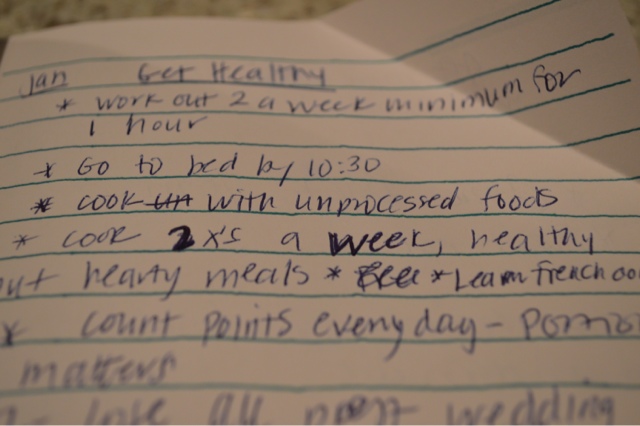 Jan Get Healthy
* work out 2 a week minimum for
1 hour
* Go to bed by 10:30
* cook with unprocessed foods
* cook 2 x's a week, healthy
hearty meals * * Learn french
* count points everyday -
matters
lose all post wedding